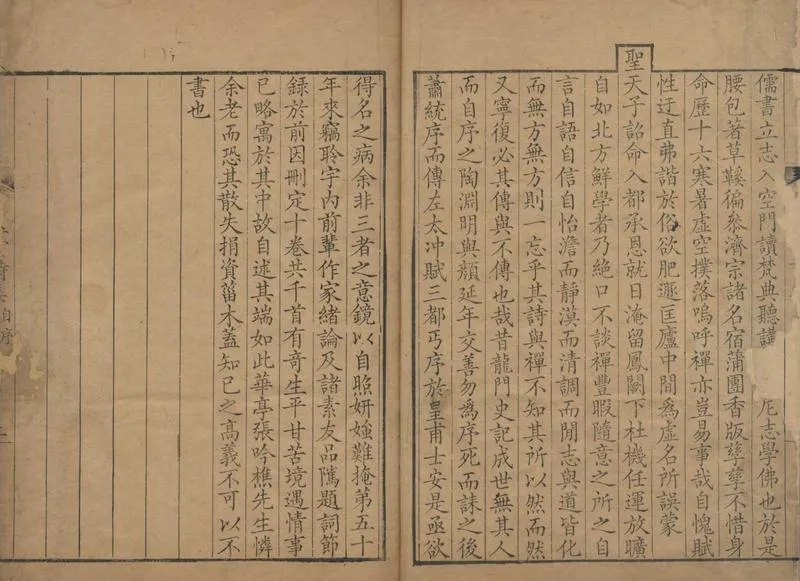 儒書立志入空門讀梵典聽講
志學佛也於是
腰包著草鞵徧叅濟宗諸名宿蒲團香版孳孳不惜身
命歷十六寒暑虛空撲落嗚呼禪亦豈易事哉自愧賦
性迂直弗諧於俗欲肥遯匡廬中間爲虛名所誤蒙
聖
天子詔命入都承恩就日淹留鳳闕下杜機任運放曠
自如北方鮮學者乃絶口不談禪豐暇隨意之所之自
言自語自信自怡澹而靜漠而清調而閒志與道皆化
而無方無方則一忘乎其詩與禪不知其所以然而然
又寧復必其傳與不傳也哉昔龍門史記成世無其人
而自序之陶淵明與顔延年交善勿爲序死而誄之後
蕭統序而傳左太冲賦三都丐序於皇甫士安是亟欲
得名之病余非三者之意鏡以自照妍媸難掩第五十
年來竊聆宇内前輩作家緒論及諸素友品隲題詞節
録於前因刪定十卷共千首有奇生平甘苦境遇情事
已略寓於其中故自述其端如此華亭張吟樵先生憐
余老而恐其散失捐資菑木蓋知已之高義不可以不
書也
自序